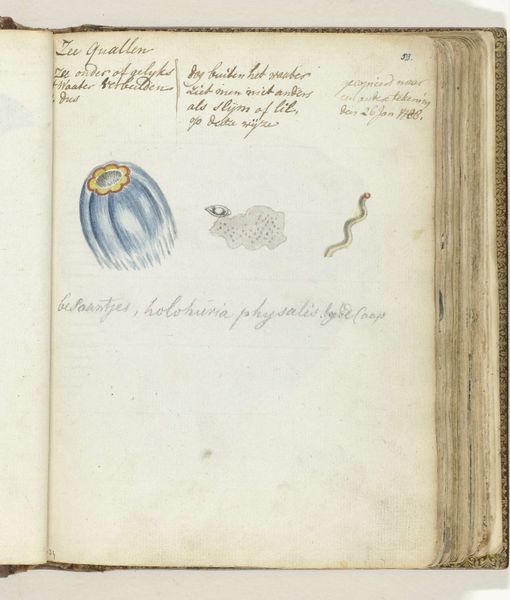 Zee Quallen
Zee onder of gelyks
't Waater verbeelden
dus
dog buiten het waater
Ziet men niet anders
als slym of lil,
op deeze wyze
53.
gecopieerd naar
een tekening
den 26 Jan
besaantjes, holohuria physalis. by de Caap